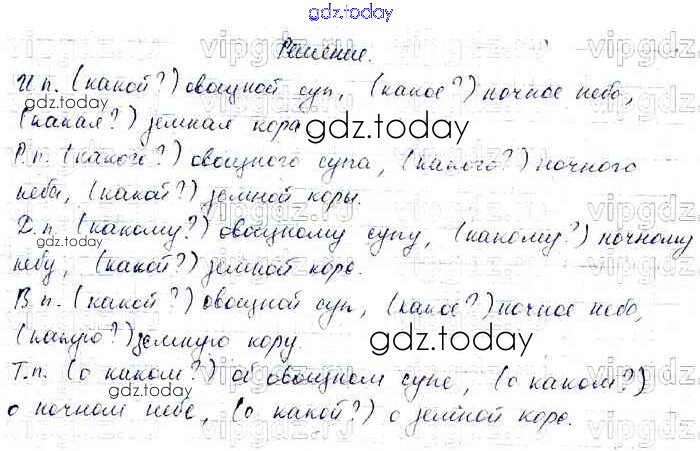 gdz.today
Решение.
И.п. (какой?) овощной суп, (какое?) ночное небо,
gdz.today
(какая?) земная кора
gdz.today
Р.п. (какого?) овощного супа, (какого?) ночного
неба, (какой?) земной коры.
Д.п. (какому?) овощному супу, (какому?) ночному
gdz.today
небу, (какой?) земной коре.
В.п. (какой?) овощной суп, (какое?) ночное небо,
(какую?) земную кору.
gdz.today
Т.п. (о каком?) об овощном супе, (о каком?)
gdz.today
о ночном небе, (о какой?) о земной коре.